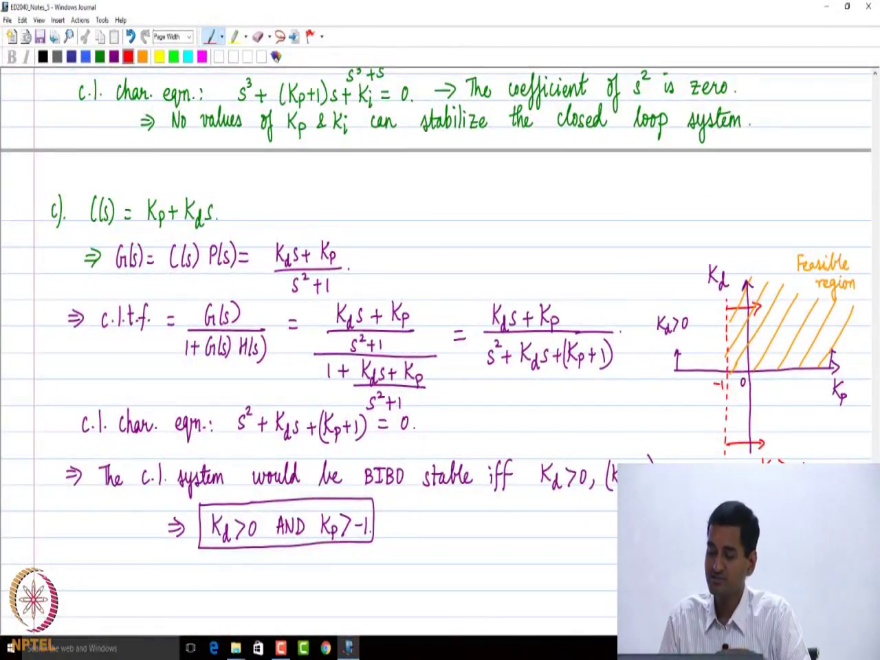 ED2040_Notes_5 - Windows Journal
File Edit View Insert Actions Tools Help
Page Width
B I
s³+s
c.l. char. eqn.: s³ + (Kp+1)s + Ki = 0. → The coefficient of s² is zero.
⇒ No values of Kp & Ki can stabilize the closed loop system.
c). C(s) = Kp + Kds.
⇒ G(s) = C(s) P(s) = Kds + Kp / s²+1.
⇒ c.l.t.f. = G(s) / 1 + G(s) H(s) = Kds + Kp / s²+1 / 1 + Kds + Kp / s²+1 = Kds + Kp / s² + Kds + (Kp+1).
c.l. char. eqn.: s² + Kds + (Kp+1) = 0.
⇒ The c.l. system would be BIBO stable iff Kd>0, (K
⇒ Kd>0 AND Kp>-1.
Feasible
region
Kd
Kd>0
-1 0
Kp
NPTEL
the web and Windows